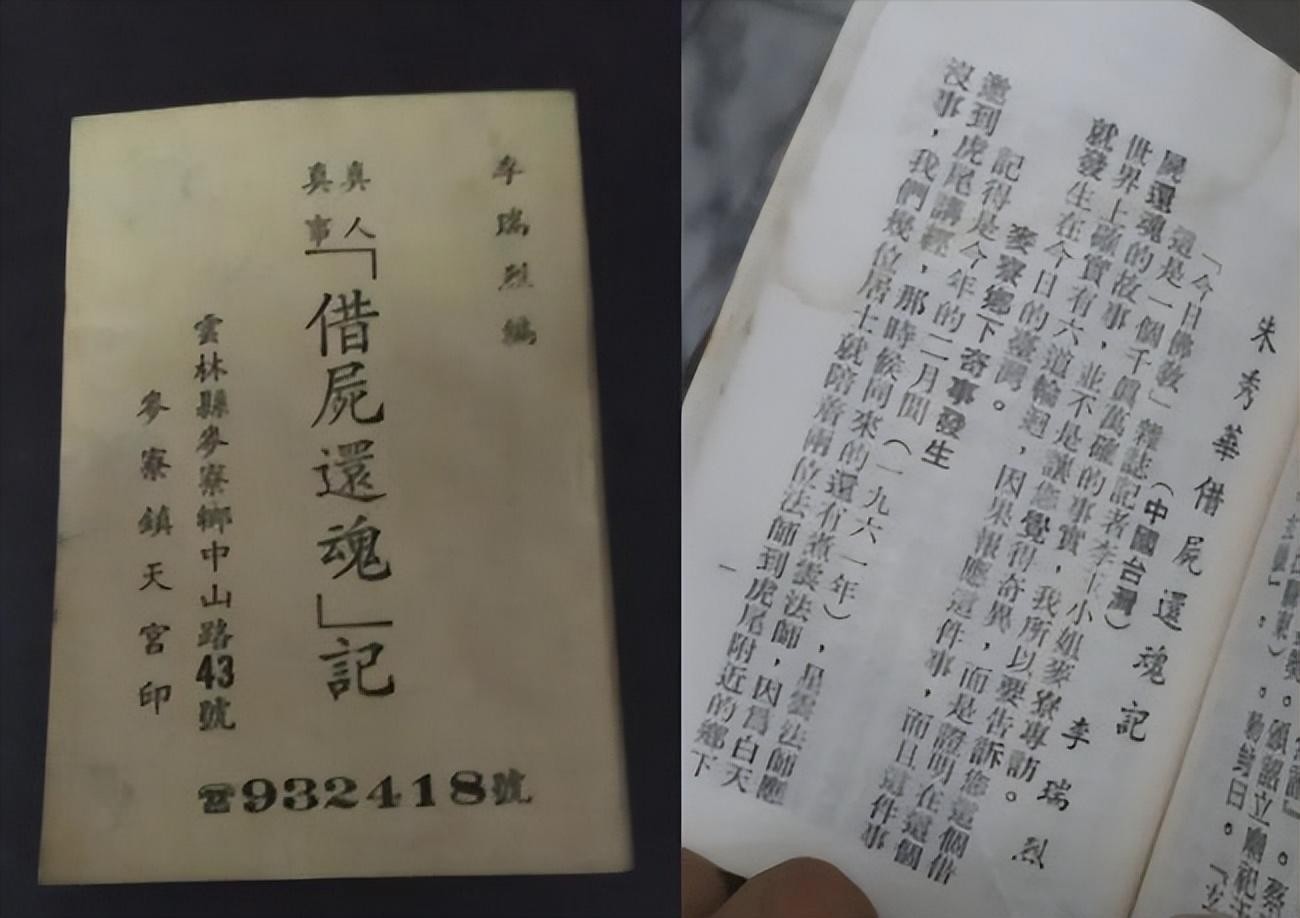 李瑞烈編
真人
真事
「借屍還魂」記
雲林縣麥寮鄉中山路43號
麥寮鎮天宮印
☎932418號
朱秀華借屍還魂記 李瑞烈
(中國台灣)
「今日佛教」雜誌記者李玉小姐麥寮專訪。
這是一個千真萬確的事實,我所以要告訴您這個借
屍還魂的故事,並不是讓您覺得奇異,而是證明在這個
世界上確實有六道輪迴,因果報應這件事,而且這件事
就發生在今日的臺灣。
麥寮鄉下奇事發生
記得是今年的二月間(一九六一年),星雲法師應
邀到虎尾講經,那時候同來的還有煮雲法師,因爲白天
沒事,我們幾位居士就陪着兩位法師到虎尾附近的鄉下
一